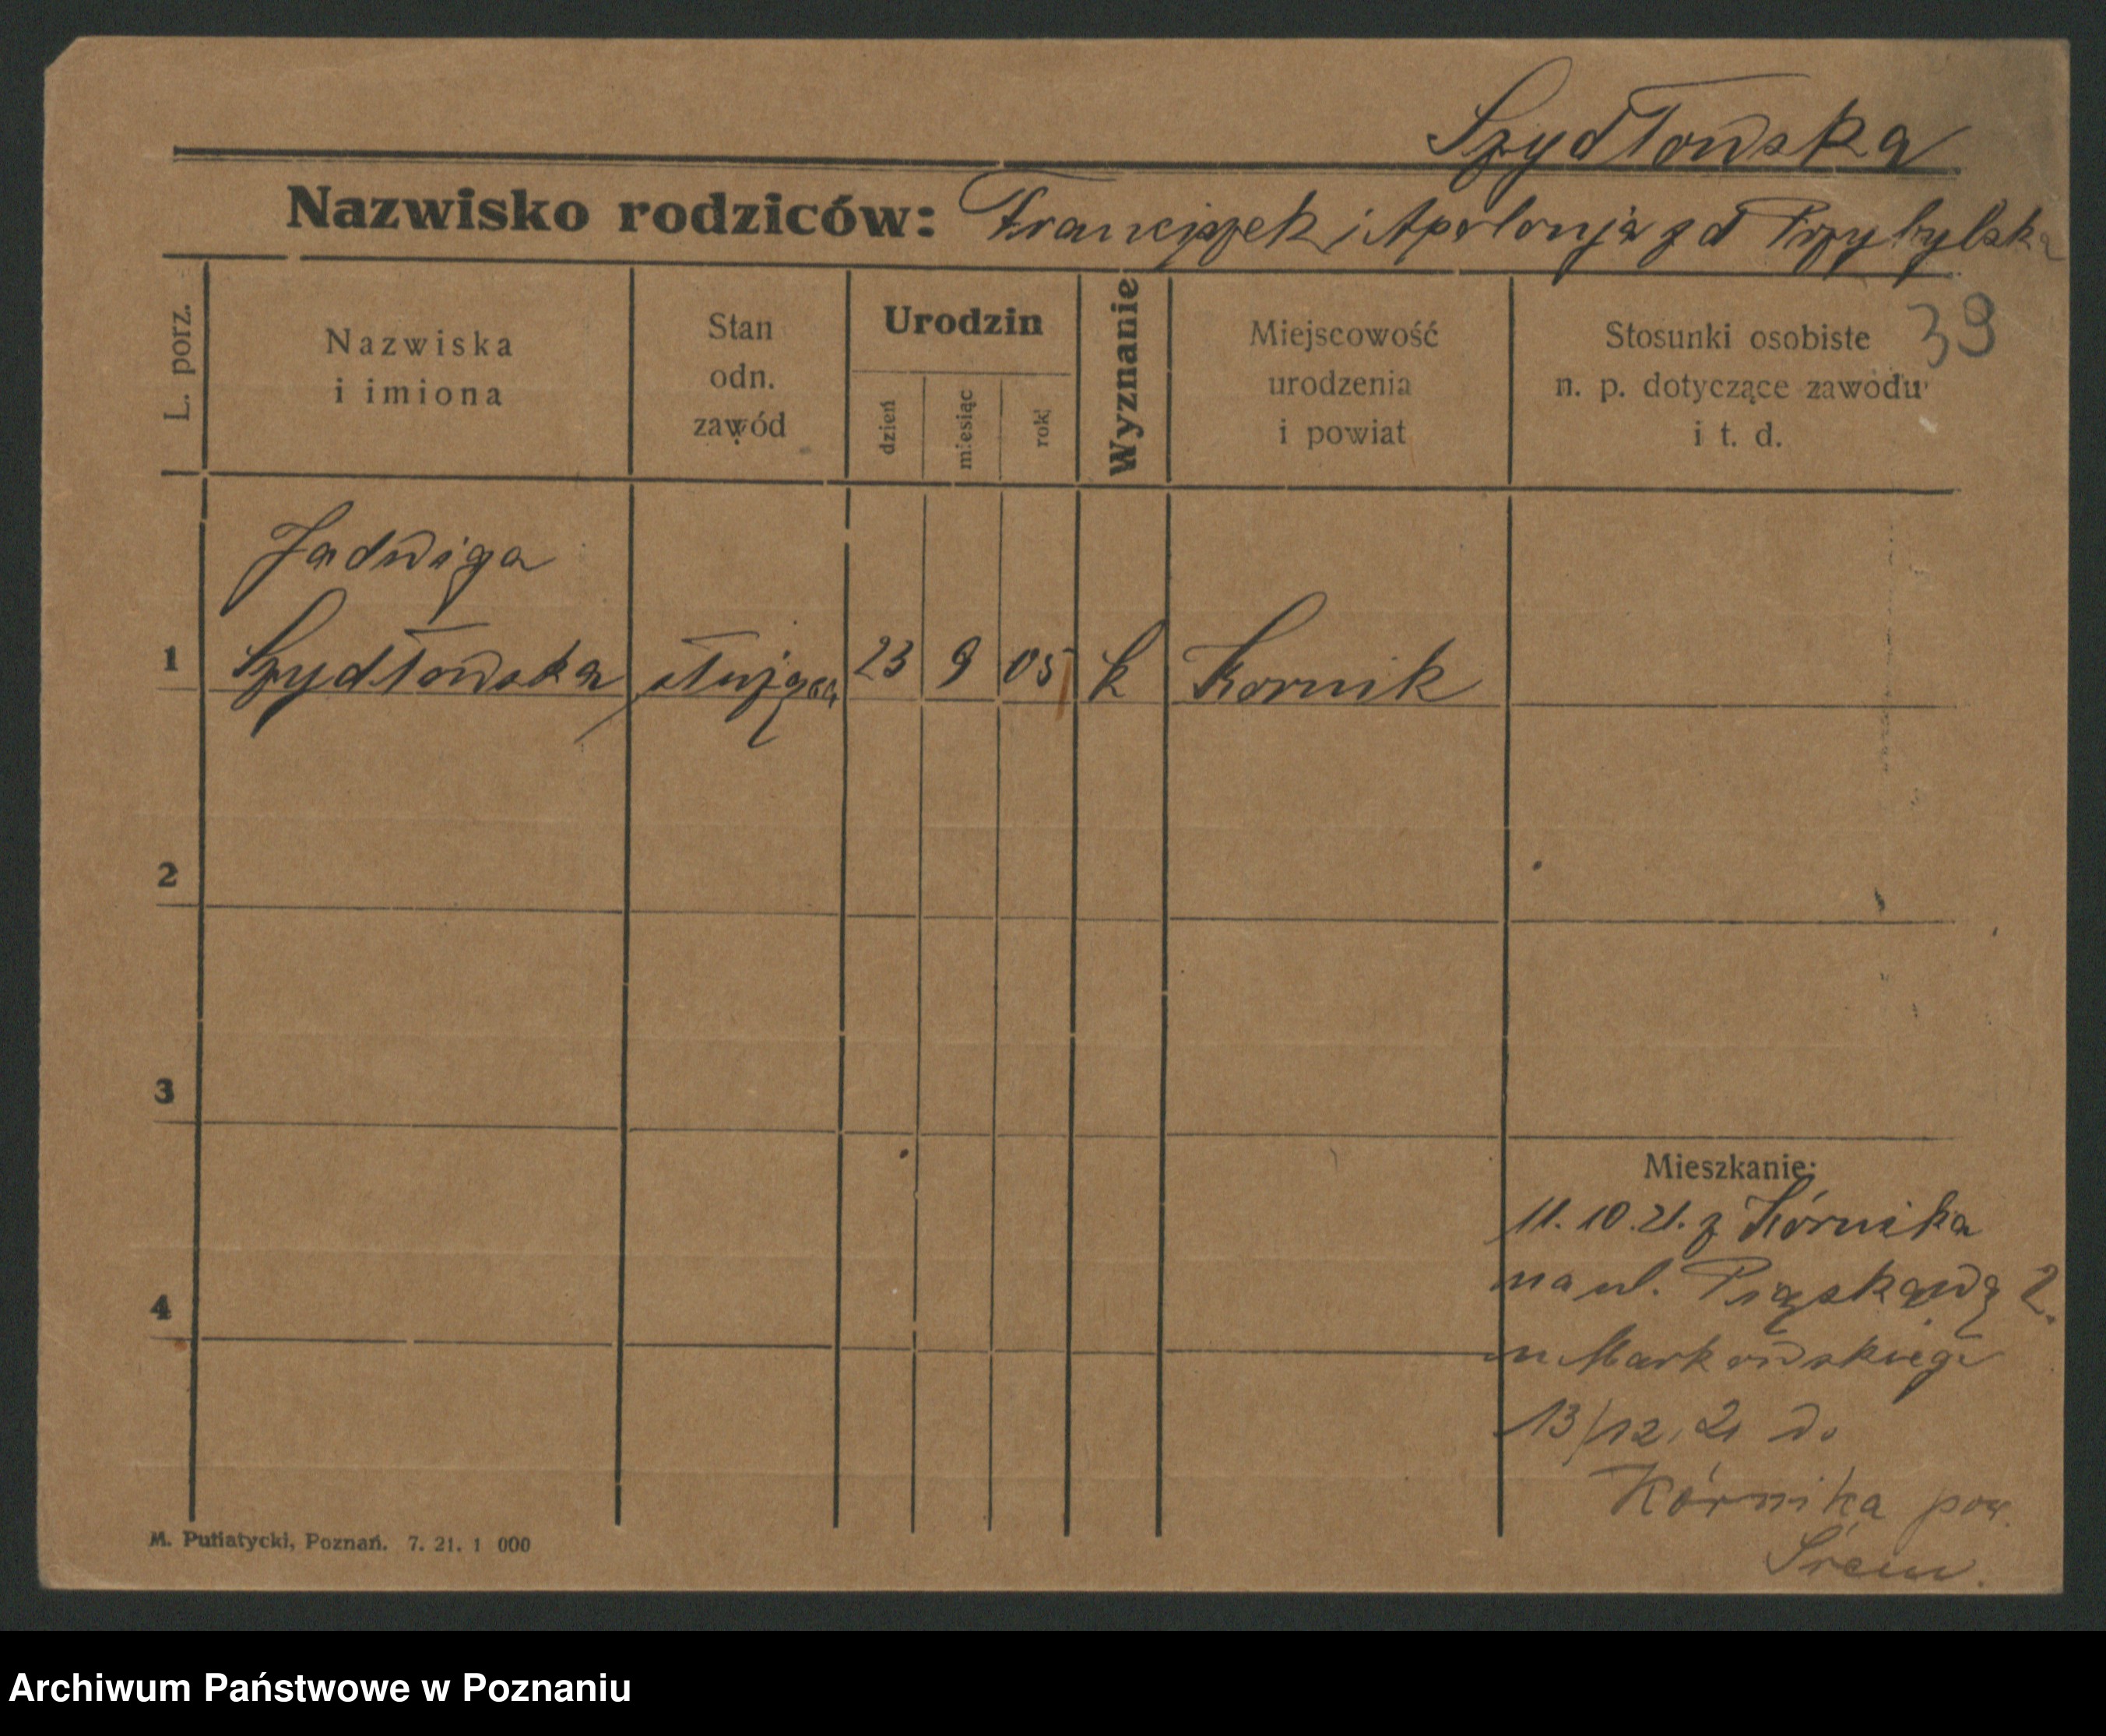 Szydłowska
Nazwisko rodziców: Franciszek i Apolonja z d Przybylska
39
L. porz.
Nazwiska
i imiona
Stan
odn.
zawód
Urodzin
dzień
miesiąc
rok
Wyznanie
Miejscowość
urodzenia
i powiat
Stosunki osobiste
n. p. dotyczące zawodu
i t. d.
Jadwiga
1 Szydłowska służąca 23 9 05 k Kornik
2
3
Mieszkanie:
11.10.21. z Kórnika
na ul. 2.
4
u Markowskiego
13/12.21 do
Kórnika pow.
Śrem.
M. Putiatycki, Poznań. 7. 21. 1 000
Archiwum Państwowe w Poznaniu